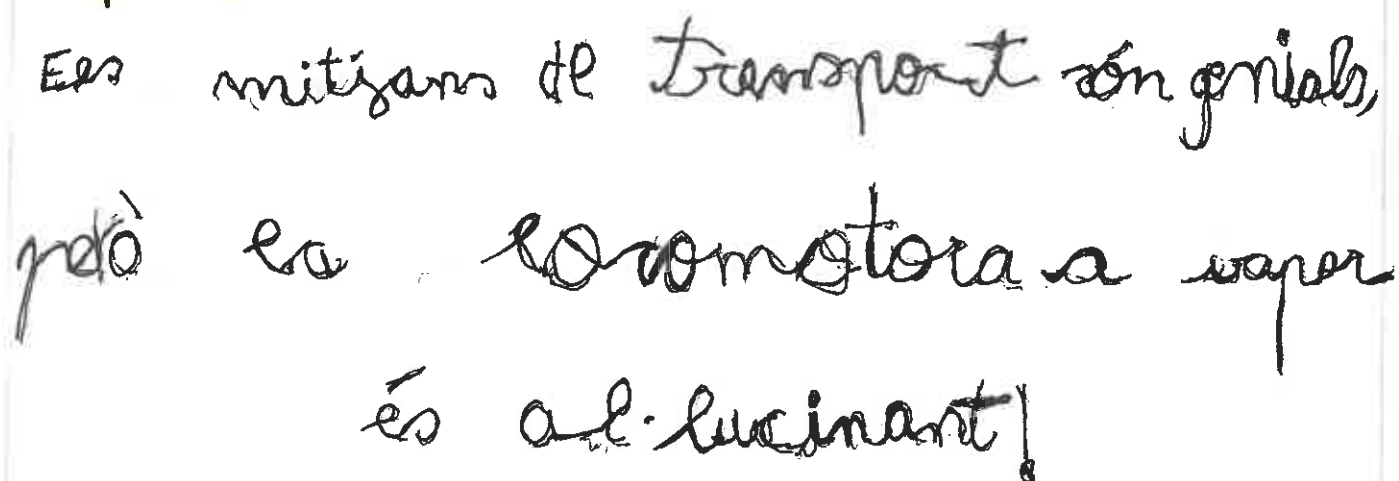 Els mitjans de transport són genials,
però la locomotora a vapor
és al·lucinant!